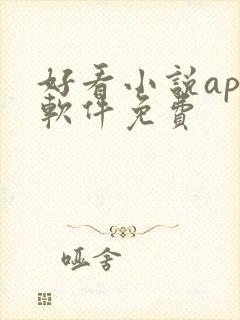 好看小説ap
軟件免費
哑舍